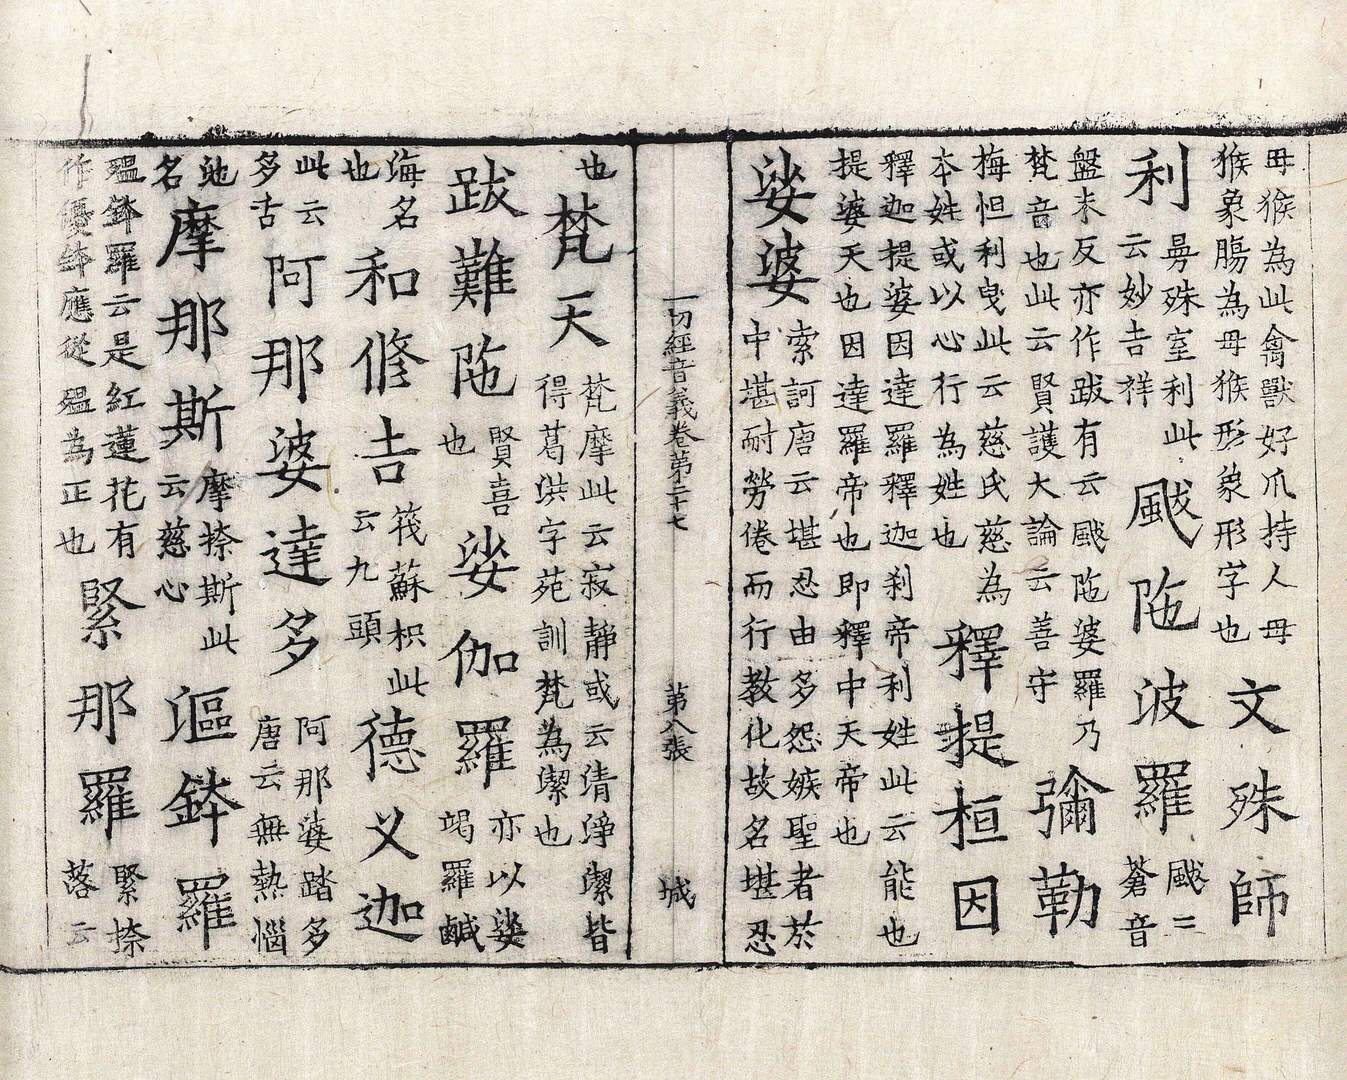 母猴為此禽獸好爪持人母
猴象腸為母猴形象形字也
文殊師
利
曼殊室利此
云妙吉祥
颰陁波羅
颰三蒼音
盤末反亦作跋有云颰陁婆羅乃
梵音也此云賢護大論云善守
彌勒
梅怛利曳此云慈氏慈為
本姓或以心行為姓也
釋提桓因
釋迦提婆因達羅釋迦刹帝利姓此云能也
提婆天也因達羅帝也即釋中天帝也
娑婆
索訶唐云堪忍由多怨嫉聖者於
中堪耐勞倦而行教化故名堪忍
一切經音義卷第二十七 第八張 城
也
梵天
梵摩此云寂靜或云清淨潔皆
得葛洪字苑訓梵為潔也
跋難陁
賢喜
也
娑伽羅
亦以娑
竭羅鹹
海名
也
和修吉
筏蘇枳此
云九頭
德义迦
此云
多舌
阿那婆達多
阿那婆踏多
唐云無熱惱
池
名
摩那斯
摩捺斯此
云慈心
漚鉢羅
殟鉢羅云是紅蓮花有
作優鉢應從殟為正也
緊那羅
緊捺
落云